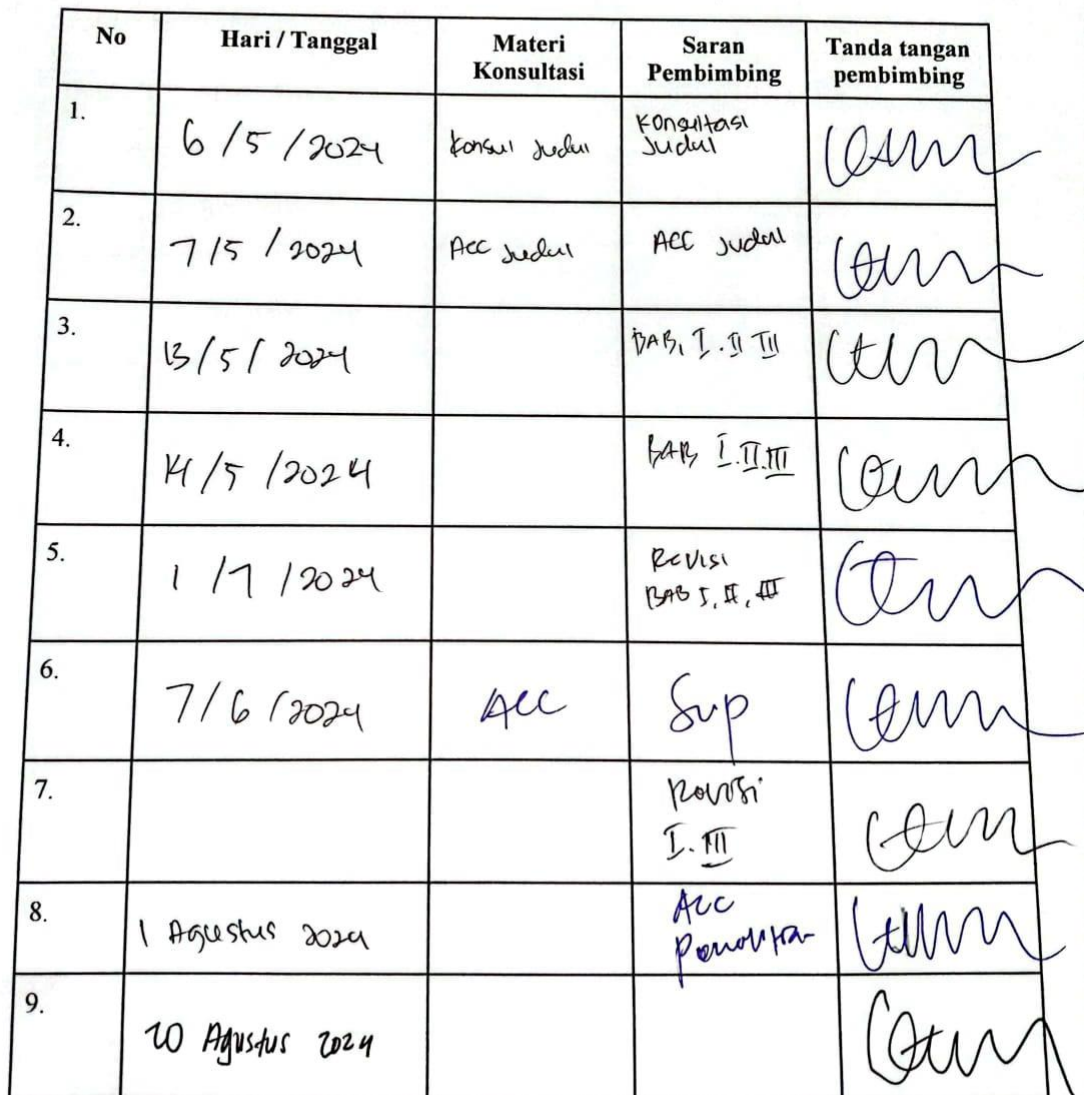 No Hari / Tanggal Materi Konsultasi Saran Pembimbing Tanda tangan pembimbing
1. 6 / 5 / 2024 Konsul Judul Konsultasi Judul
2. 7 / 5 / 2024 Acc Judul ACC Judul
3. 13 / 5 / 2024 BAB, I . II III
4. 14 / 5 / 2024 BAB I.II.III
5. 1 / 7 / 2024 Revisi BAB I, II, III
6. 7 / 6 / 2024 Acc Sup
7. Revisi I. III
8. 1 Agustus 2024 Acc
9. 20 Agustus 2024